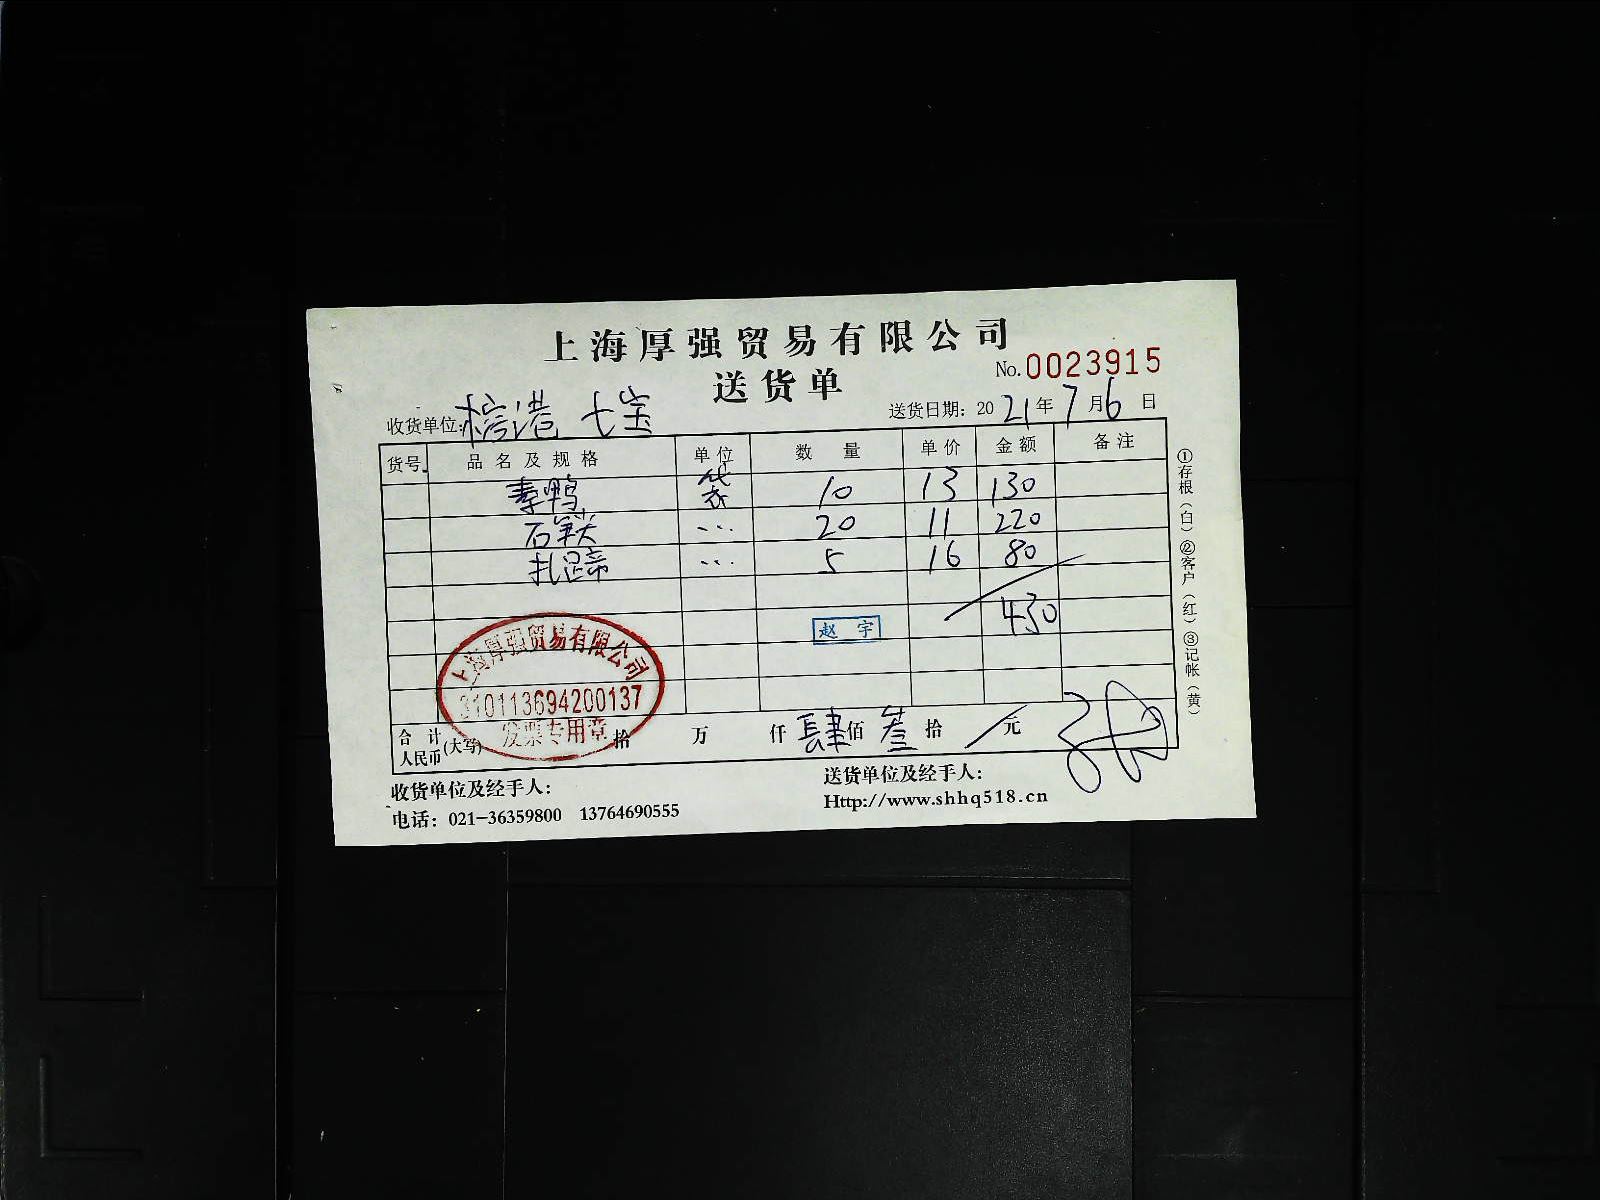 上海厚强贸易有限公司
送货单
No.0023915
收货单位: 七宝
送货日期: 2021年7月6日
货号 品名及规格 单位 数量 单价 金额 备注
素鸭 袋 10 13 130
20 11 220
扎蹄 5 16 80
430
赵宇
上海厚强贸易有限公司
310113694200137
发票专用章
合计人民币(大写) 拾 万 仟 肆佰 叁拾 元
收货单位及经手人:
送货单位及经手人:
电话: 021-36359800 13764690555
Http://www.shhq518.cn
①存根(白)②客户(红)③记帐(黄)